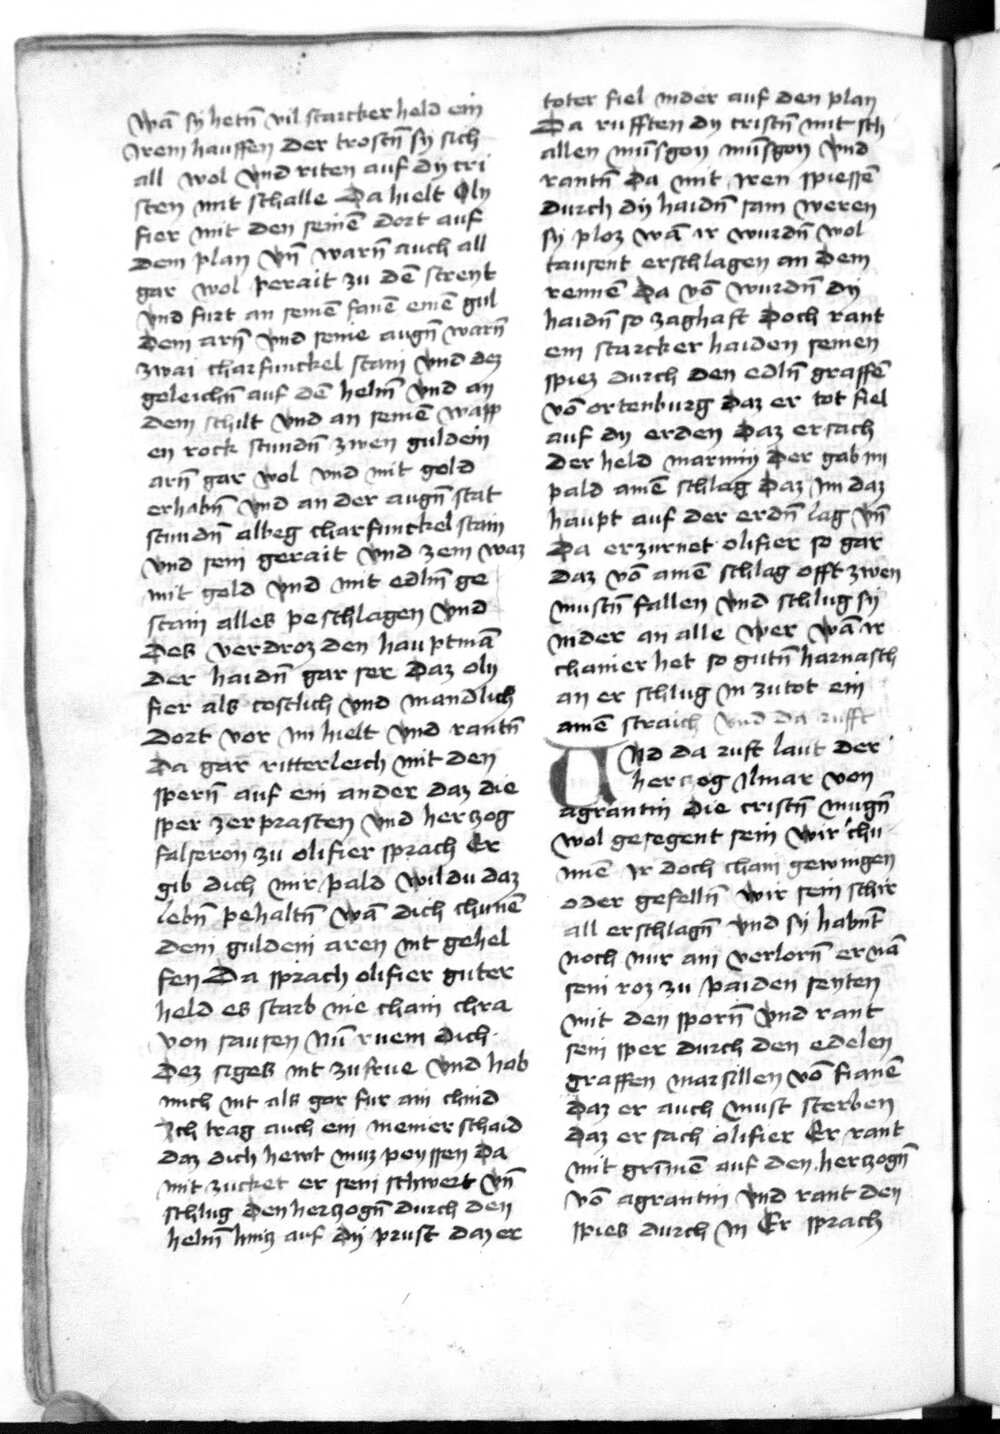 Wā sy hetn̄ vil starcker held ein
Irem hauffen der trostn̄ sy sich
all wol vnd riten auf dy cri
sten mit schalle Da hielt Oly
fier mit den seinē dort auf
dem plan vn̄ warn̄ auch all
gar wol perait zu dē streyt
vnd furt an seinē fanē einē gul
dein arn̄ vnd seine augn̄ warn̄
zwai charfunckel stain vnd dez
geleichn̄ auf dē helm̄ vnd an
dem schilt vnd an seinē wapp
en rock stundn̄ zwen guldein
arn̄ gar wol vnd mit gold
erhabn̄ vnd an der augn̄ stat
stundn̄ albeg charfunckel stain
vnd sein gerait vnd zem waz
mit gold vnd mit edlm̄ ge
stain alles peschlagen vnd
Des verdroz den hauptmā
der haidn̄ gar ser daz oly
fier als costlich vnd mandlich
dort vor im hielt vnd rantn̄
Da gar ritterleich mit den
spern̄ auf ein ander daz die
sper zerprasten vnd herczog
falseron zu olifier sprach Er
gib dich mir pald wildu daz
lebn̄ pehaltn̄ wā dich chunē
dein guldein aren nit gehel
fen Da sprach olifier guter
held es starb nie chain chra
von sausen nū ruem dich
Dez siges nit zu frue vnd hab
mich nit als gar fur ain chind
Ich trag auch ein meiner schaid
daz dich hewt muz peyssen Da
mit zucket er sein schwert vn̄
schlug den herczogn̄ durch den
helm̄ hincz auf dy prust daz er
toter fiel nider auf den plan
Da rufften dy cristn̄ mit sch
allen munsgoy munsgoy vnd
rantn̄ da mit iren spiessē
durch dy haidn̄ sam weren
sy ploz wā ir wurdn̄ wol
tausent erschlagen an dem
rennē Da vō wurdn̄ dy
haidn̄ so zaghaft Doch rant
ein starcker haiden seinen
spiez durch den edln̄ graffē
vō ortenburg daz er tot fiel
auf dy erden Daz ersach
der held marmiy Der gab im
pald ainē schlag Daz im daz
haupt auf der erdn̄ lag vn̄
Da erzurnet olifier so gar
daz vō ainē schlag offt zwen
mustn̄ fallen vnd schlug sy
nider an alle wer wā ir
chainer het so gutn̄ harnasch
an er schlug in zu tot ein
ainē straich vnd da rufft
Vnd da ruft laut der
herczog Ilmar von
agrantin die cristn̄ mugn̄
wol gesegent sein wir chu
nnē ir doch chain gewingen
oder gefelln̄ wir sein schir
all erschlagn̄ vnd sy habn̄t
noch nur ain verlorn̄ er nā
sein roz zu paiden seyten
mit den sporn̄ vnd rant
sein sper durch den edelen
graffen marsillen vō fianē
daz er auch must sterben
daz ersach olifier Er rant
mit grimmē auf den herczogn̄
vō agrantin vnd rant den
spies durch in Er sprach